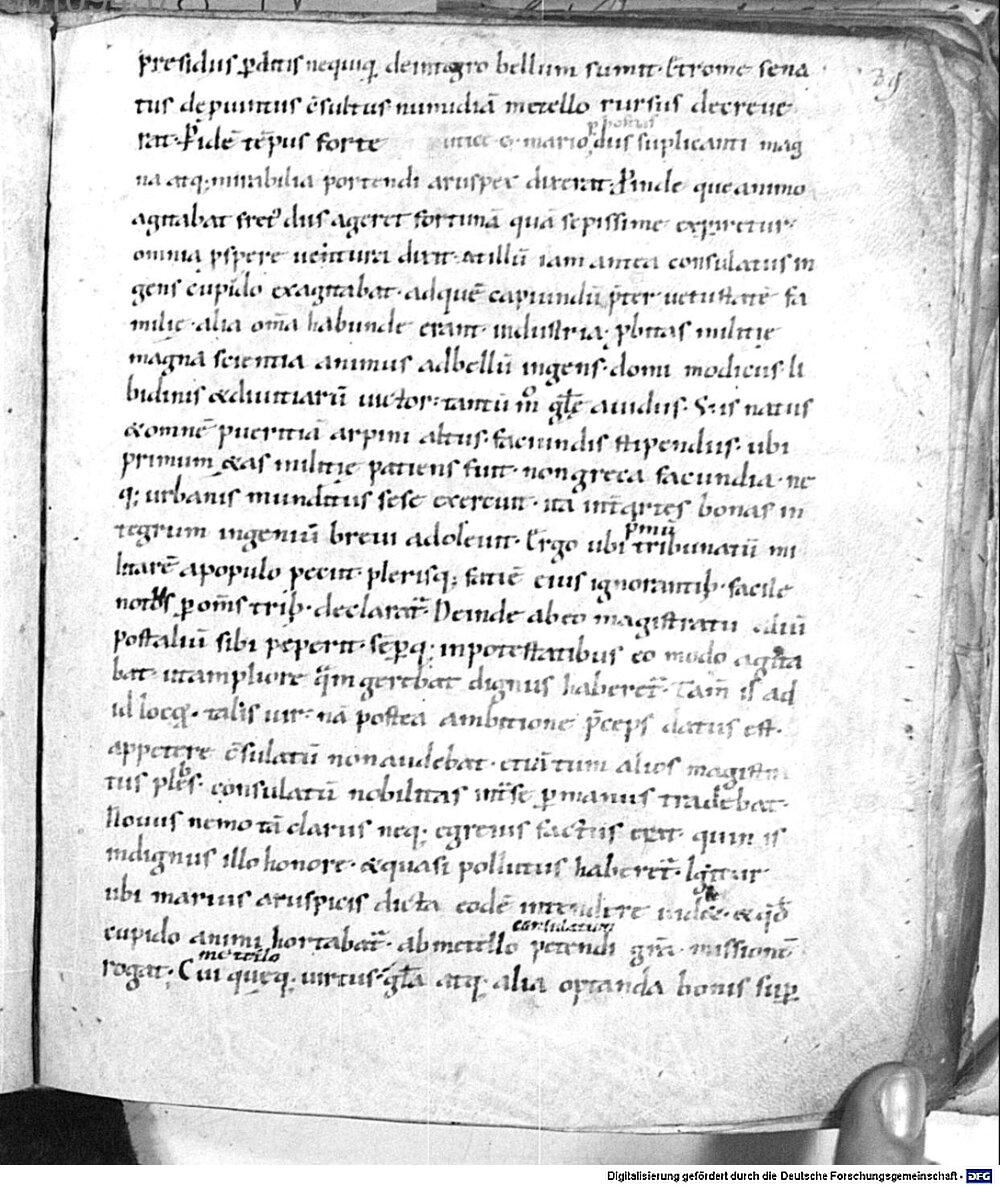 39
presidiis p̄ditis nequiq; deintegro bellum sumit· Et rome sena
tus deꝓuintiis c̄sultus numidiā metello rursus decreue
rat· P̱ idē tēpus forte utice c· mario p hostias dīs suplicanti mag
na atq; mirabilia portendi aruspex dixerat; P̱inde que animo
agitabat fret' dīis ageret fortunā quā sepissime exꝑiretur·
omnia ꝓspere uentura dixit· at illū iam antea consulatus in
gens cupido exagitabat· ad quē capiundū p̄ter uetustatē fa
milię· alia om̄a habunde erant· industria· ꝓbitas militię
magna scientia animus ad bellū ingens· domi modicus· li
bidinis & diuitiarū uictor· tantū m̊ gl̄ę auidus· S; is natus
& omnē pueritiā arpini altus· faciundis stipendiis· ubi
primum &as militię patiens fuit· non greca facundia· ne
q; urbanis munditiis sese exercuit· ita int̄ artes bonas in
tegrum ingeniū breui adoleuit· Ergo ubi p̄mū tribunatū mi
litarē a populo petit· plerisq; fatiē eius ignorantib; facile
notus ꝑ om̄s trib; declarat̄· Deinde ab eo magistratu aliū
post aliū sibi peperit· sēperq; in potestatibus eo modo agita
bat· ut ampliore quā gerebat dignus haberet̄· Tam̄ is ad
id locoȩ· talis uir· nā postea ambitione p̄ceps datus est·
appetere c̄sulatū non audebat· etiātum alios magistra
tus plebs· consulatū nobilitas int̄ se ꝑ manus tradebat·
Nouus nemo tā clarus neq; egreius factis erat· quin is
indignus illo honore· & quasi pollutus haberet̄· Igitur
ubi marius aruspicis dicta eodē intendere uidet· & qđ
cupido animi hortabat̄· ab metello consulatum petendi gr̄a· missionē
rogat; Cui metello quęq; uirtus· gl̄a atq; alia optanda bonis suꝑ
Digitalisierung gefördert durch die Deutsche Forschungsgemeinschaft - DFG